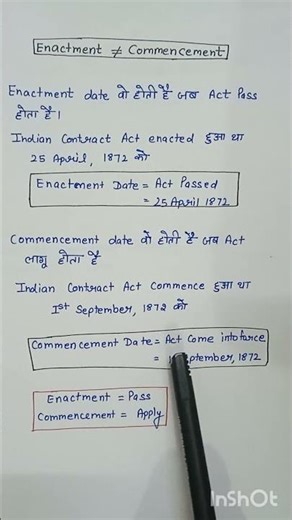 Enactment ≠ Commencement
Enactment date वो होती है जब Act Pass
होता है।
Indian Contract Act enacted हुआ था
25 April, 1872 को
Enactment Date = Act Passed
= 25 April 1872
Commencement date वो होती है जब Act
लागू होता है
Indian Contract Act Commence हुआ था
Ist September, 1872 को
Commencement Date = Act Come into farce
= September, 1872
Enactment = Pass
Commencement = Apply
InShOt